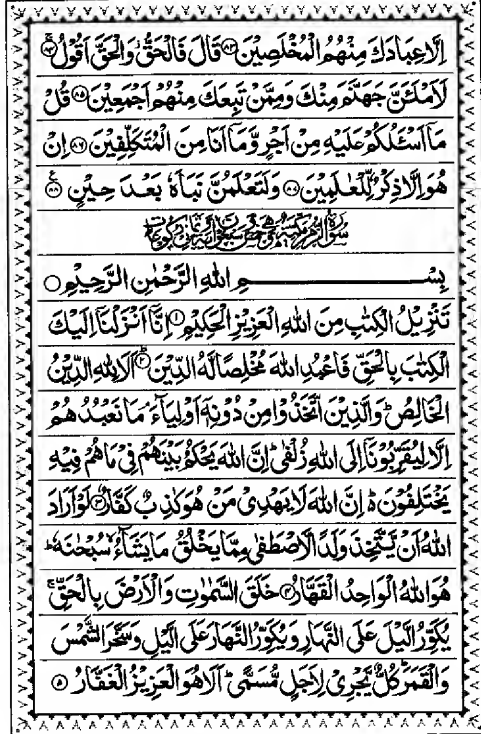 اِلَّا عِبَادَكَ مِنْهُمُ الْمُخْلَصِيْنَ ﴿۸۳﴾ قَالَ فَالْحَقُّ وَالْحَقَّ اَقُوْلُ ﴿۸۴﴾
لَاَمْلَـَٔنَّ جَهَنَّمَ مِنْكَ وَمِمَّنْ تَبِعَكَ مِنْهُمْ اَجْمَعِيْنَ ﴿۸۵﴾ قُلْ
مَاۤ اَسْـَٔلُكُمْ عَلَيْهِ مِنْ اَجْرٍ وَّمَاۤ اَنَا مِنَ الْمُتَكَلِّفِيْنَ ﴿۸۶﴾ اِنْ
هُوَ اِلَّا ذِكْرٌ لِّلْعٰلَمِيْنَ ﴿۸۷﴾ وَلَتَعْلَمُنَّ نَبَاَهٗ بَعْدَ حِيْنٍ ﴿۸۸﴾
بِسْمِ اللّٰهِ الرَّحْمٰنِ الرَّحِيْمِ
تَنْزِيْلُ الْكِتٰبِ مِنَ اللّٰهِ الْعَزِيْزِ الْحَكِيْمِ ﴿۱﴾ اِنَّاۤ اَنْزَلْنَاۤ اِلَيْكَ
الْكِتٰبَ بِالْحَقِّ فَاعْبُدِ اللّٰهَ مُخْلِصًا لَّهُ الدِّيْنَ ﴿۲﴾ اَلَا لِلّٰهِ الدِّيْنُ
الْخَالِصُ ؕ وَالَّذِيْنَ اتَّخَذُوْا مِنْ دُوْنِهٖۤ اَوْلِيَآءَ ۘ مَا نَعْبُدُهُمْ
اِلَّا لِيُقَرِّبُوْنَاۤ اِلَى اللّٰهِ زُلْفٰى ؕ اِنَّ اللّٰهَ يَحْكُمُ بَيْنَهُمْ فِيْ مَا هُمْ فِيْهِ
يَخْتَلِفُوْنَ ؕ۬ اِنَّ اللّٰهَ لَا يَهْدِيْ مَنْ هُوَ كٰذِبٌ كَفَّارٌ ﴿۳﴾ لَوْ اَرَادَ
اللّٰهُ اَنْ يَّتَّخِذَ وَلَدًا لَّاصْطَفٰى مِمَّا يَخْلُقُ مَا يَشَآءُ ۙ سُبْحٰنَهٗ ؕ
هُوَ اللّٰهُ الْوَاحِدُ الْقَهَّارُ ﴿۴﴾ خَلَقَ السَّمٰوٰتِ وَالْاَرْضَ بِالْحَقِّ ۚ
يُكَوِّرُ الَّيْلَ عَلَى النَّهَارِ وَيُكَوِّرُ النَّهَارَ عَلَى الَّيْلِ وَسَخَّرَ الشَّمْسَ
وَالْقَمَرَ ؕ كُلٌّ يَّجْرِيْ لِاَجَلٍ مُّسَمًّى ؕ اَلَا هُوَ الْعَزِيْزُ الْغَفَّارُ ﴿۵﴾